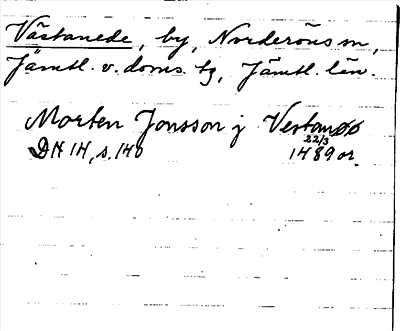 Västanede, by, Norderöns sn,
Jämtl. v. doms. tg, Jämtl. län.
Morten Jonsson j Vestanøø
22/3
DN 14, s. 140 1489 or.